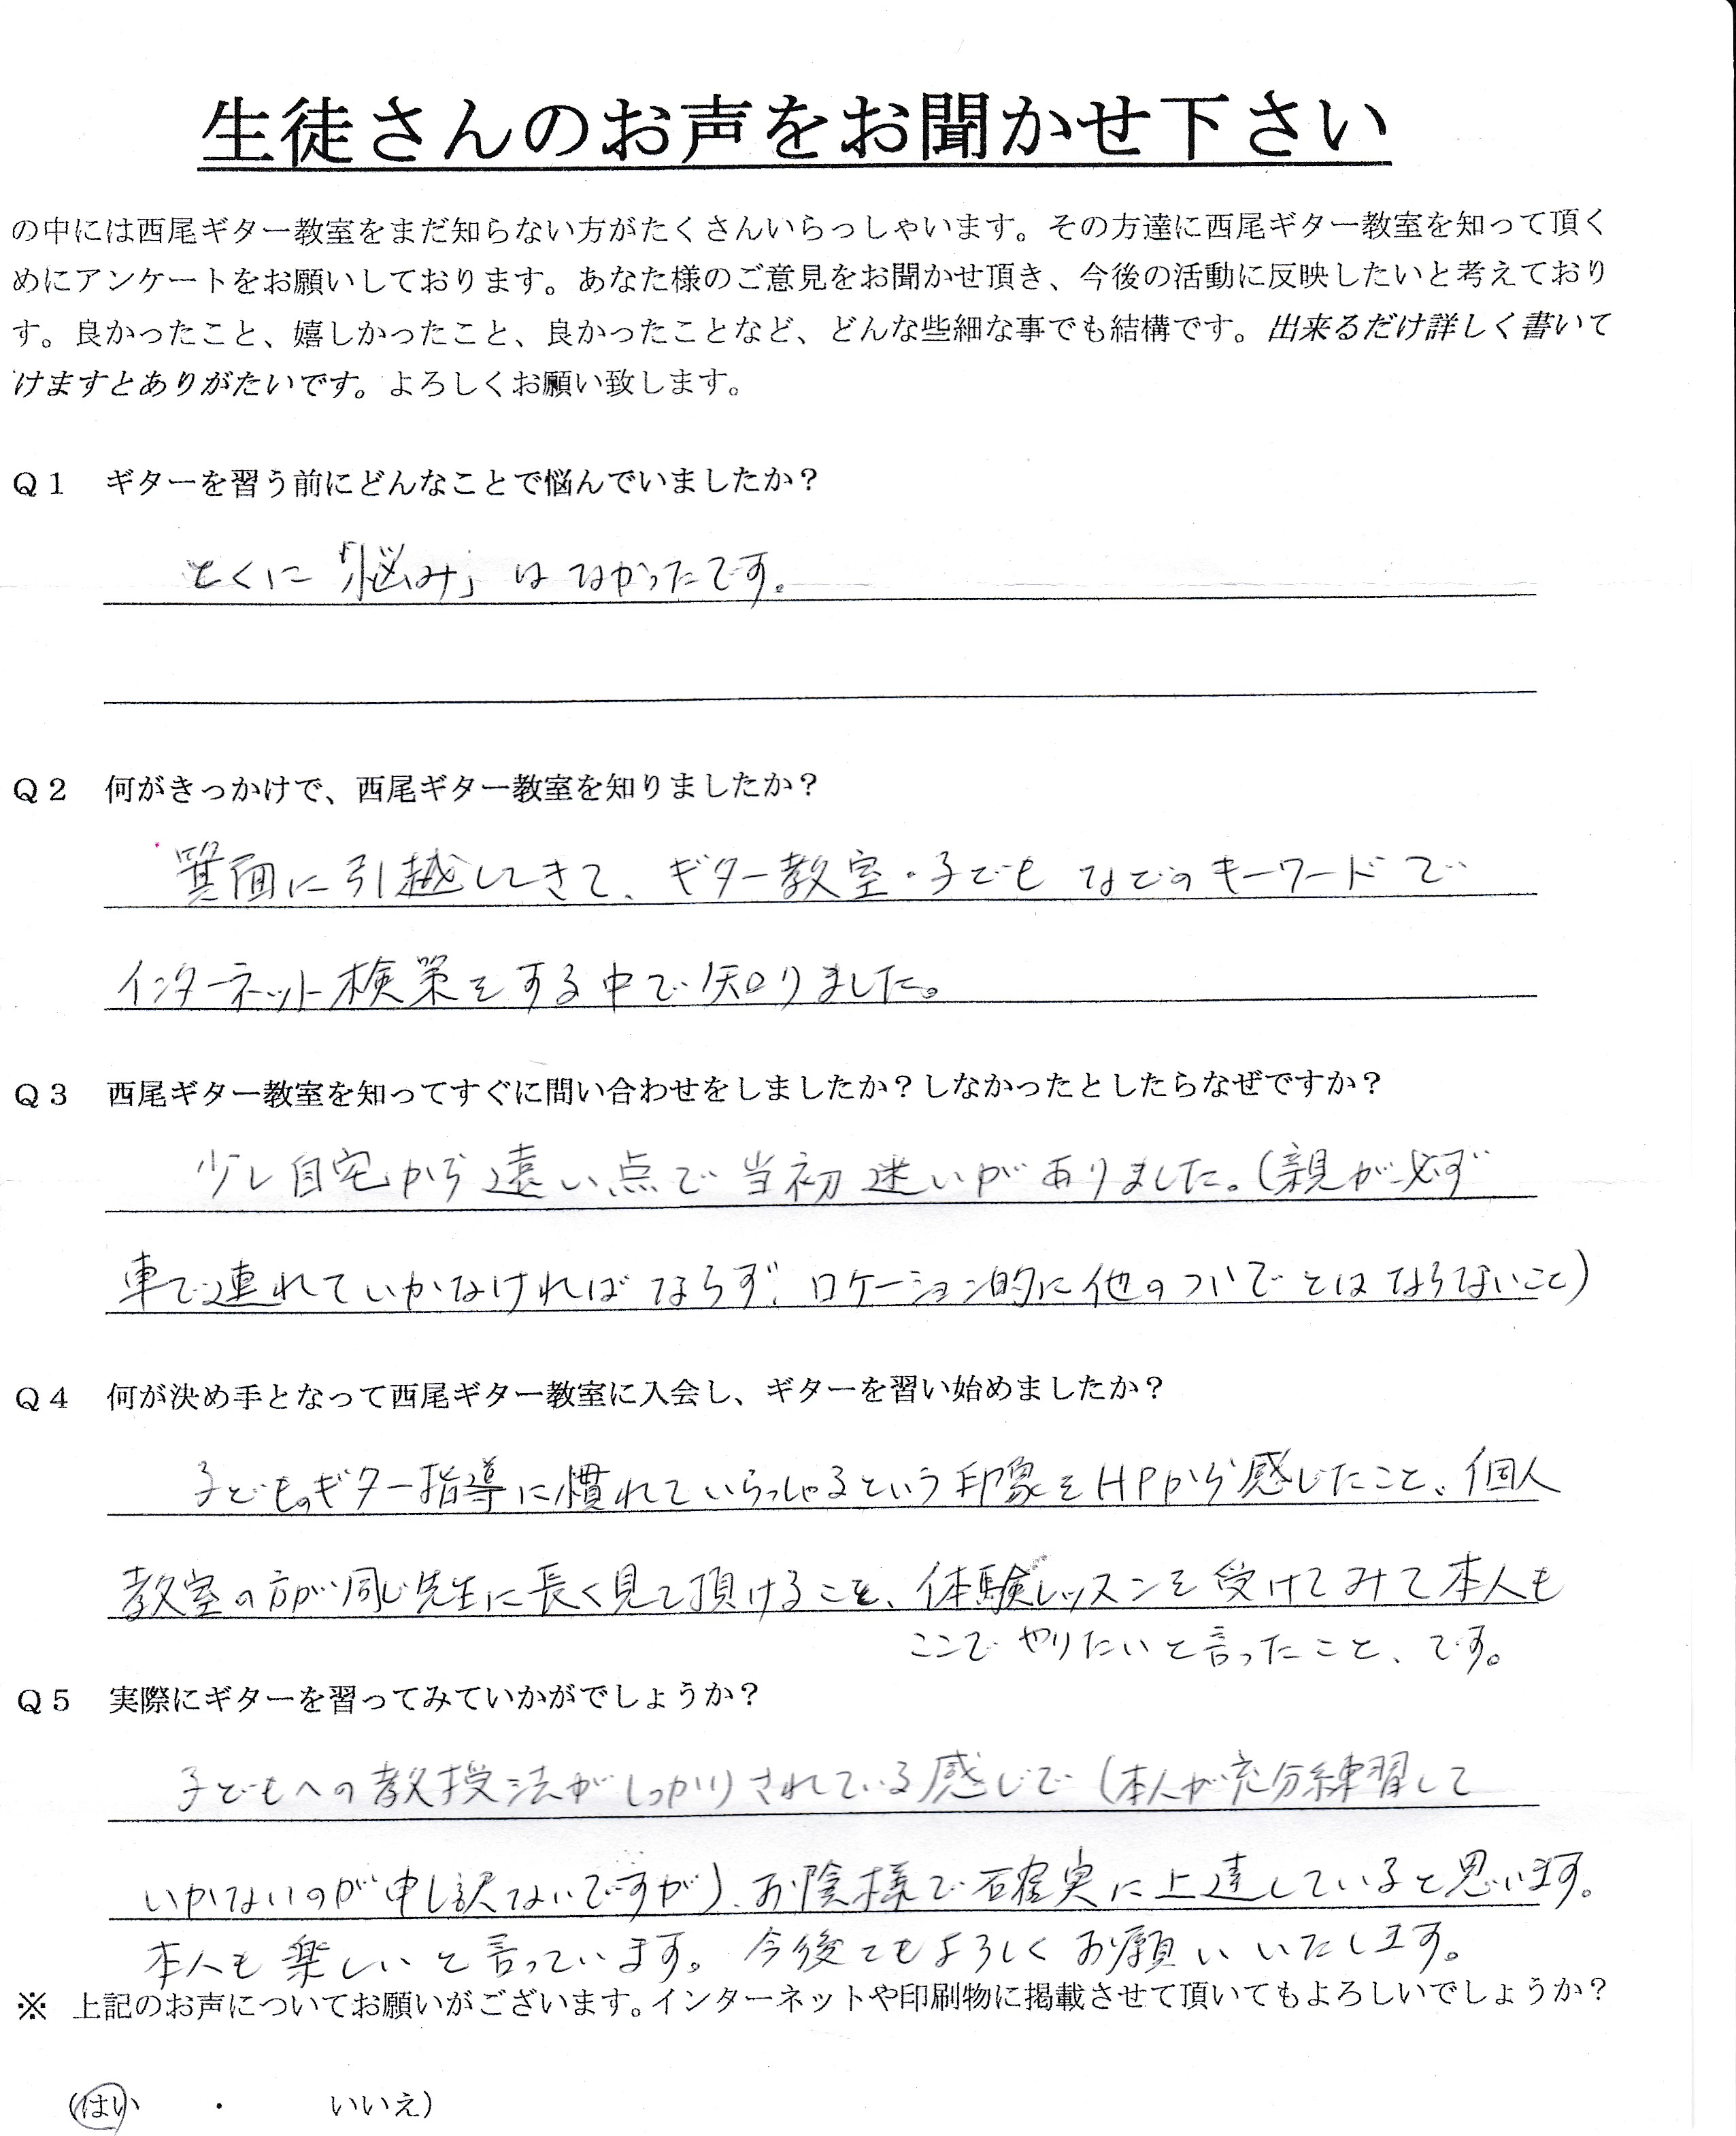 生徒さんのお声をお聞かせ下さい
の中には西尾ギター教室をまだ知らない方がたくさんいらっしゃいます。その方達に西尾ギター教室を知って頂く
めにアンケートをお願いしております。あなた様のご意見をお聞かせ頂き、今後の活動に反映したいと考えており
す。良かったこと、嬉しかったこと、良かったことなど、どんな些細な事でも結構です。出来るだけ詳しく書いて
けますとありがたいです。よろしくお願い致します。
Q1 ギターを習う前にどんなことで悩んでいましたか?
とくに「悩み」はなかったです。
Q2 何がきっかけで、西尾ギター教室を知りましたか?
箕面に引越してきて、ギター教室・子どもなどのキーワードで
インターネット検索をする中で知りました。
Q3 西尾ギター教室を知ってすぐに問い合わせをしましたか?しなかったとしたらなぜですか?
少し自宅から遠い点で当初迷いがありました。(親が必ず
車で連れていかなければならず、ロケーション的に他のついでとはならないこと)
Q4 何が決め手となって西尾ギター教室に入会し、ギターを習い始めましたか?
子どものギター指導に慣れていらっしゃるという印象をHPから感じたこと、個人
教室の方が同じ先生に長く見て頂けること、体験レッスンを受けてみて本人も
ここでやりたいと言ったこと、です。
Q5 実際にギターを習ってみていかがでしょうか?
子どもへの教授法がしっかりされている感じで(本人が充分練習して
いかないのが申し訳ないですが)、お陰様で確実に上達していると思います。
本人も楽しいと言っています。今後ともよろしくお願いいたします。
※ 上記のお声についてお願いがございます。インターネットや印刷物に掲載させて頂いてもよろしいでしょうか?
(はい ・ いいえ)